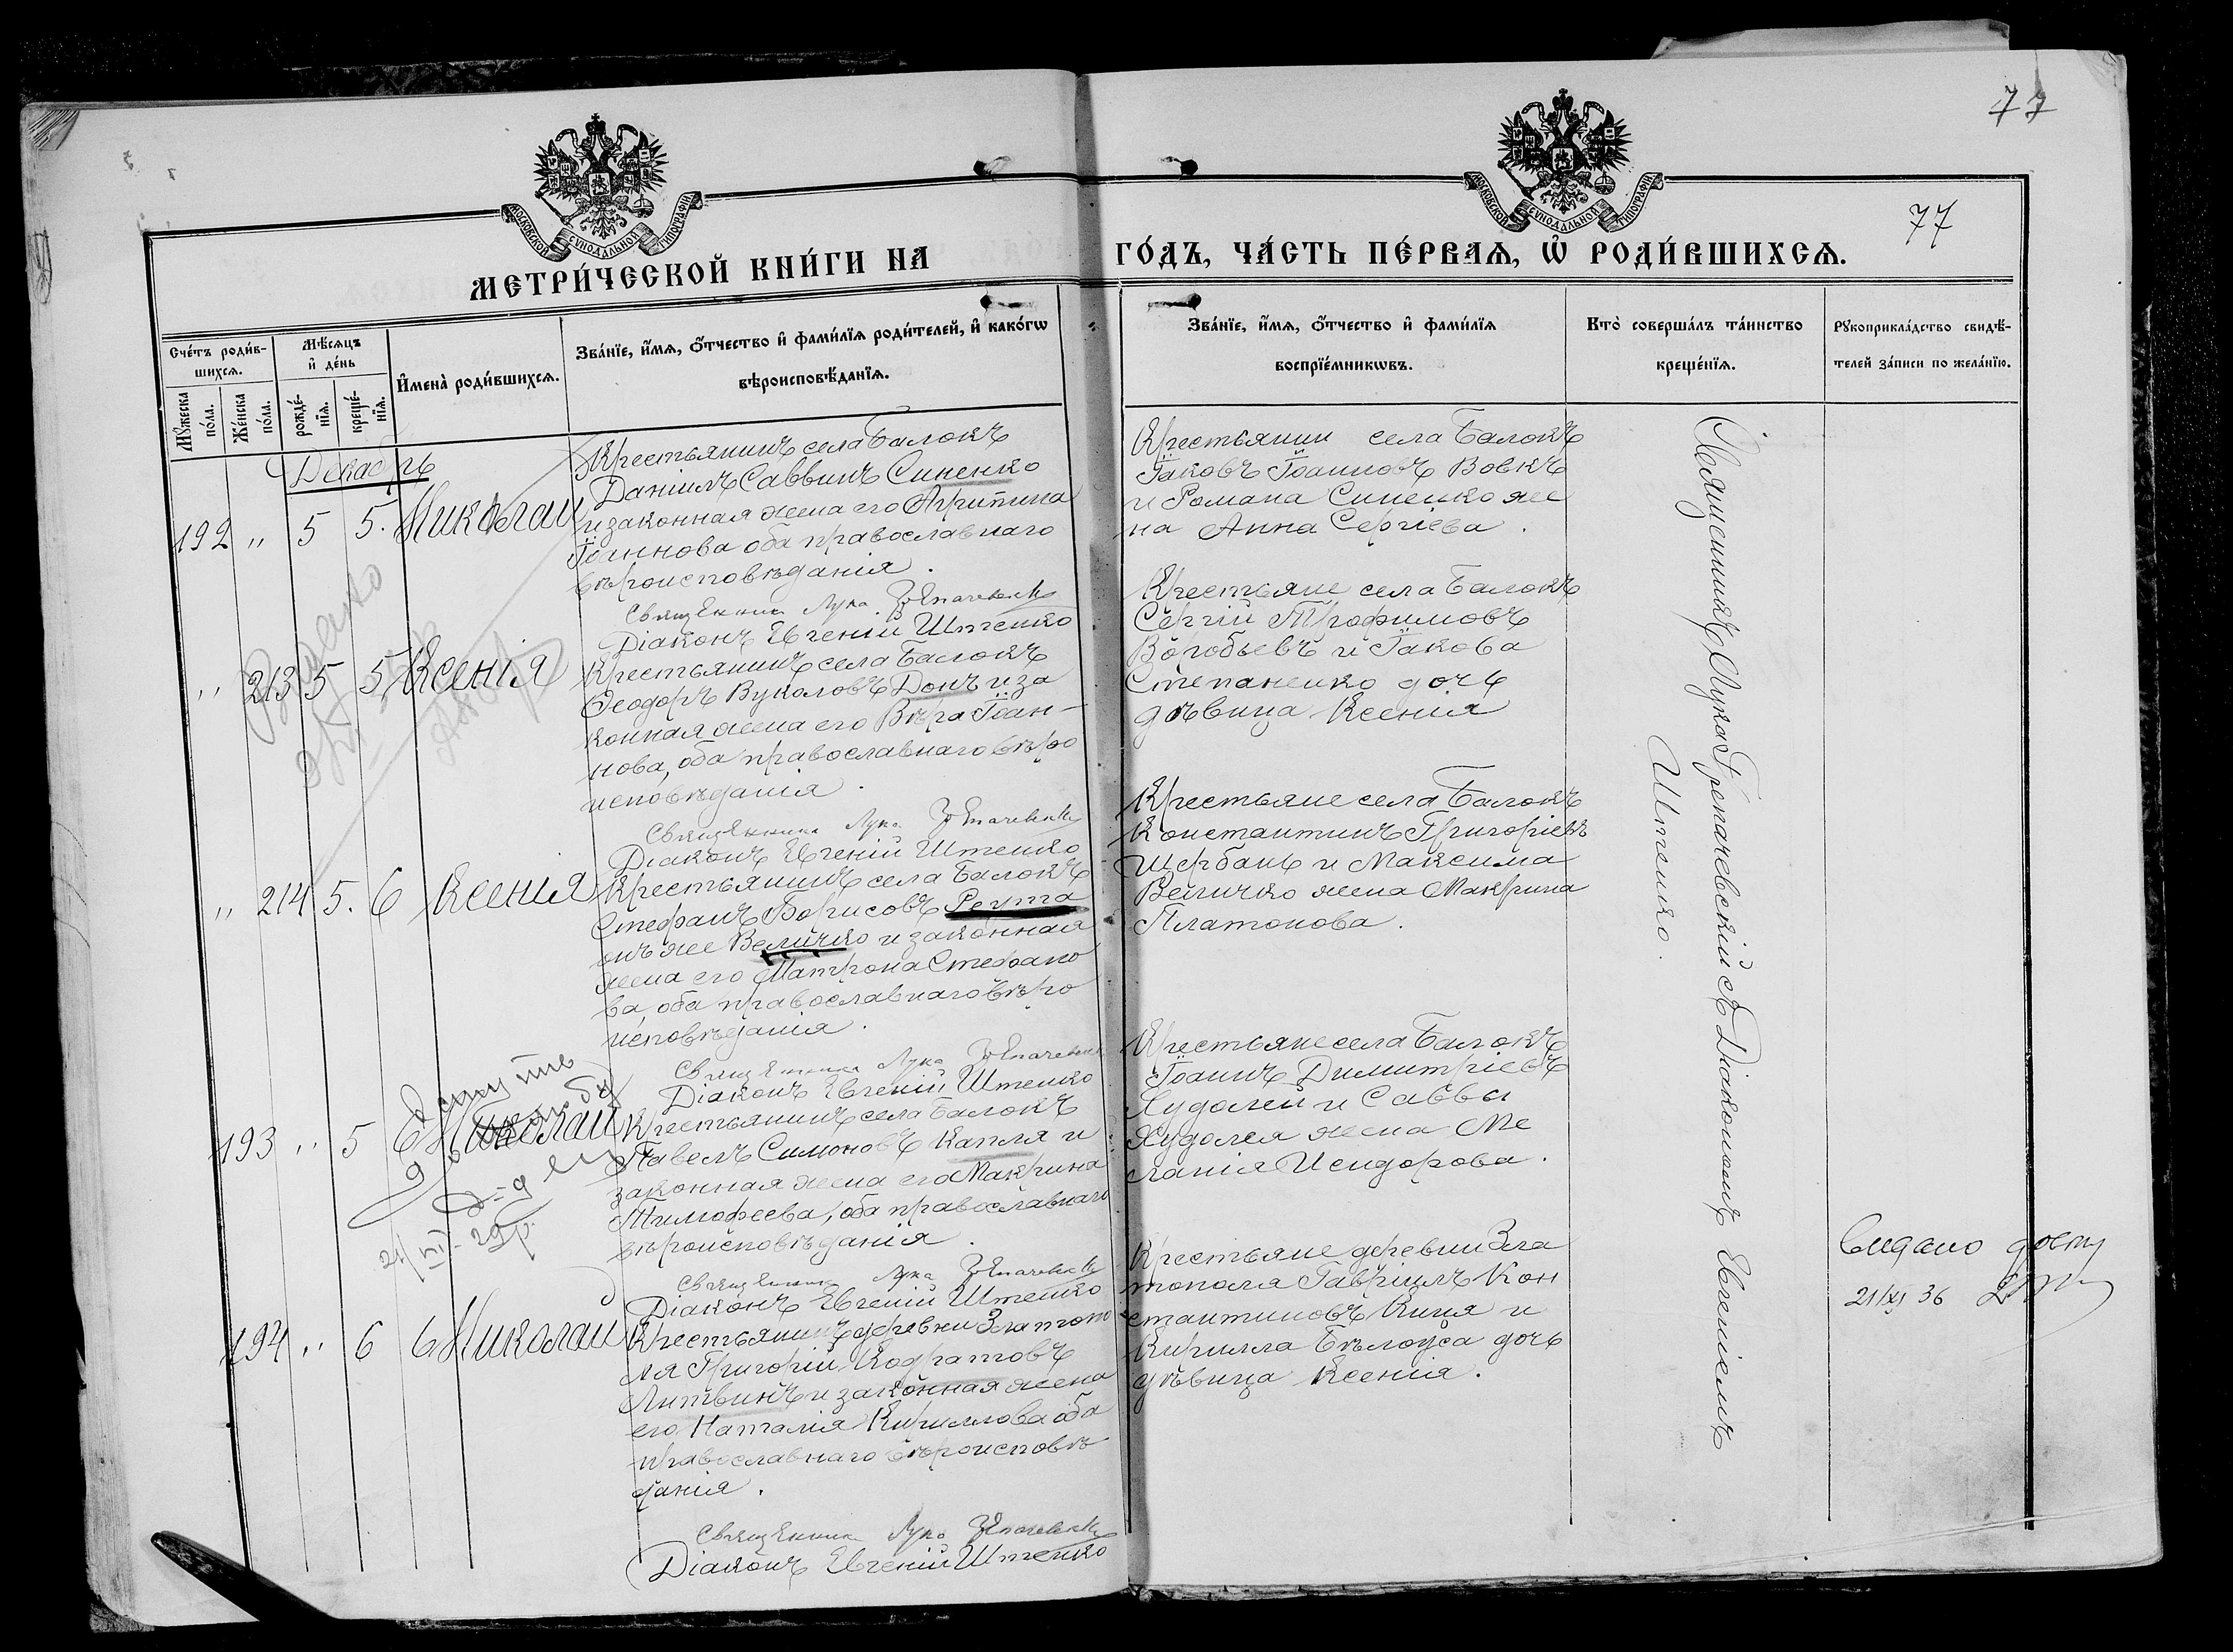 77
77
МОСКОВСКОЙ СУНОДАЛЬНОЙ ТИПОГРАФІИ
МОСКОВСКОЙ СУНОДАЛЬНОЙ ТИПОГРАФІИ
МЕТРИ́ЧЕСКОЙ КНИ́ГИ НА
ГО́ДЪ, ЧА́СТЬ ПЕ́РВАѦ, Ѽ РОДИ́ВШИХСѦ.
Сче́тъ роди́в-
шихсѧ.
Мꙋ́жеска
по́ла.
Же́нска
по́ла.
Мѣ́сѧцъ
и҆ де́нь
рожде́-
нїѧ.
креще́-
нїѧ.
И҆мена̀ роди́вшихсѧ.
Зва́нїе, и҆́мѧ, ѻ҆́тчество и҆ фами́лїѧ роди́телей, и҆ како́гѡ
вѣроисповѣ́данїѧ.
Зва́нїе, и҆́мѧ, ѻ҆́тчество и҆ фами́лїѧ
воспрїе́мникѡвъ.
Кто̀ соверша́лъ та́инство
креще́нїѧ.
Рꙋкоприкла́дство свидѣ́-
телей за́писи по жела́нїю.
Декабрь
192 " 5 5. Николай
Крестьянинъ села Балокъ
Даніилъ Саввинъ Синенко
и законная жена его Агрипина
Іоаннова оба православнаго
вѣроисповѣданія.
Священникъ Лука
Діаконъ Евгеній Штепко
Крестьянин села Балокъ
Іаковъ Іоанновъ Вовкъ
и Романа Синенко же
на Анна Сергіева.
" 213 5 5 Ксенія
Крестьянинъ села Балокъ
Ѳеодоръ Вуколовъ Донъ и за
конная жена его Вѣра Іоан-
нова, оба православнаго вѣро
исповѣданія.
Священникъ Лука
Діаконъ Евгеній Штепко
Крестьяне села Балокъ
Сергій Трофимовъ
Воробьевъ и Іакова
Степаненко дочь
дѣвица Ксенія
" 214 5. 6 Ксенія
Крестьянинъ села Балокъ
Стефанъ Борисовъ Реута
онъ же Величко и законная
жена его Матрона Стефано
ва, оба православнаго вѣро
исповѣданія.
Священникъ Лука
Діаконъ Евгеній Штепко
Крестьяне села Балокъ
Константинъ Григоріевъ
Щербань и Максима
Величко жена Макрина
Платонова.
193 " 5 6 Николай
Крестьянинъ села Балокъ
Павелъ Симоновъ Капля и
законная жена его Макрина
Тимофеева, оба православнаго
вѣроисповѣданія.
Священникъ Лука
Діаконъ Евгеній Штепко
Крестьяне села Балокъ
Іоаннъ Димитріевъ
Худолей и Саввы
Худолея жена Ме
ланія Исидорова.
194 " 6 6 Николай
Крестьянинъ деревни Златопо
ля Григорій Кодратовъ
Литвинъ и законная жена
его Наталія Кириллова оба
православнаго вѣроисповѣ
данія.
Священникъ Лука
Діаконъ Евгеній Штепко
Крестьяне деревни Зла
тополя Гавріилъ Кон
стантиновъ Киця и
Кирилла Бѣлоуса дочь
дѣвица Ксенія.
Священникъ Лука Грепачевскій съ Діакономъ Евгеніемъ
Штепко.
21/XI 36